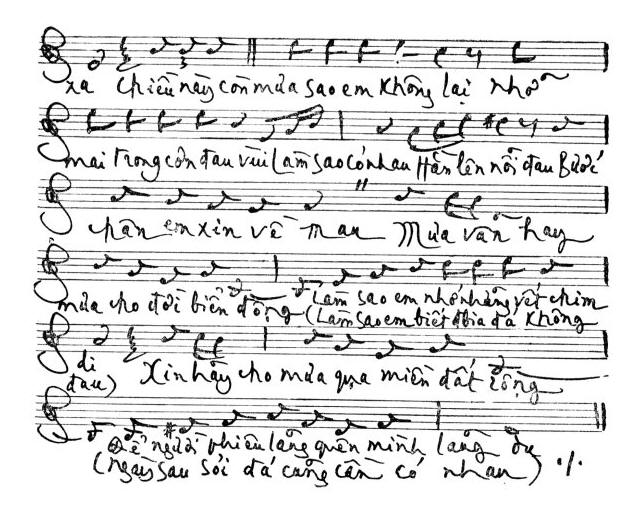 xa Chiều này còn mưa sao em không lại nhỡ
mai trong cơn đau vùi Làm sao có nhau Hằn lên nỗi đau Bước
chân em xin về mau Mưa vẫn hay
mưa cho đời biển động Làm sao em nhớ những vết chim
(Làm sao em biết bia đá không
di Xin hãy cho mưa qua miền đất rộng
đau)
Để người phiêu lãng quên mình lãng du
(ngày sau sỏi đá cũng cần có nhau) ./.